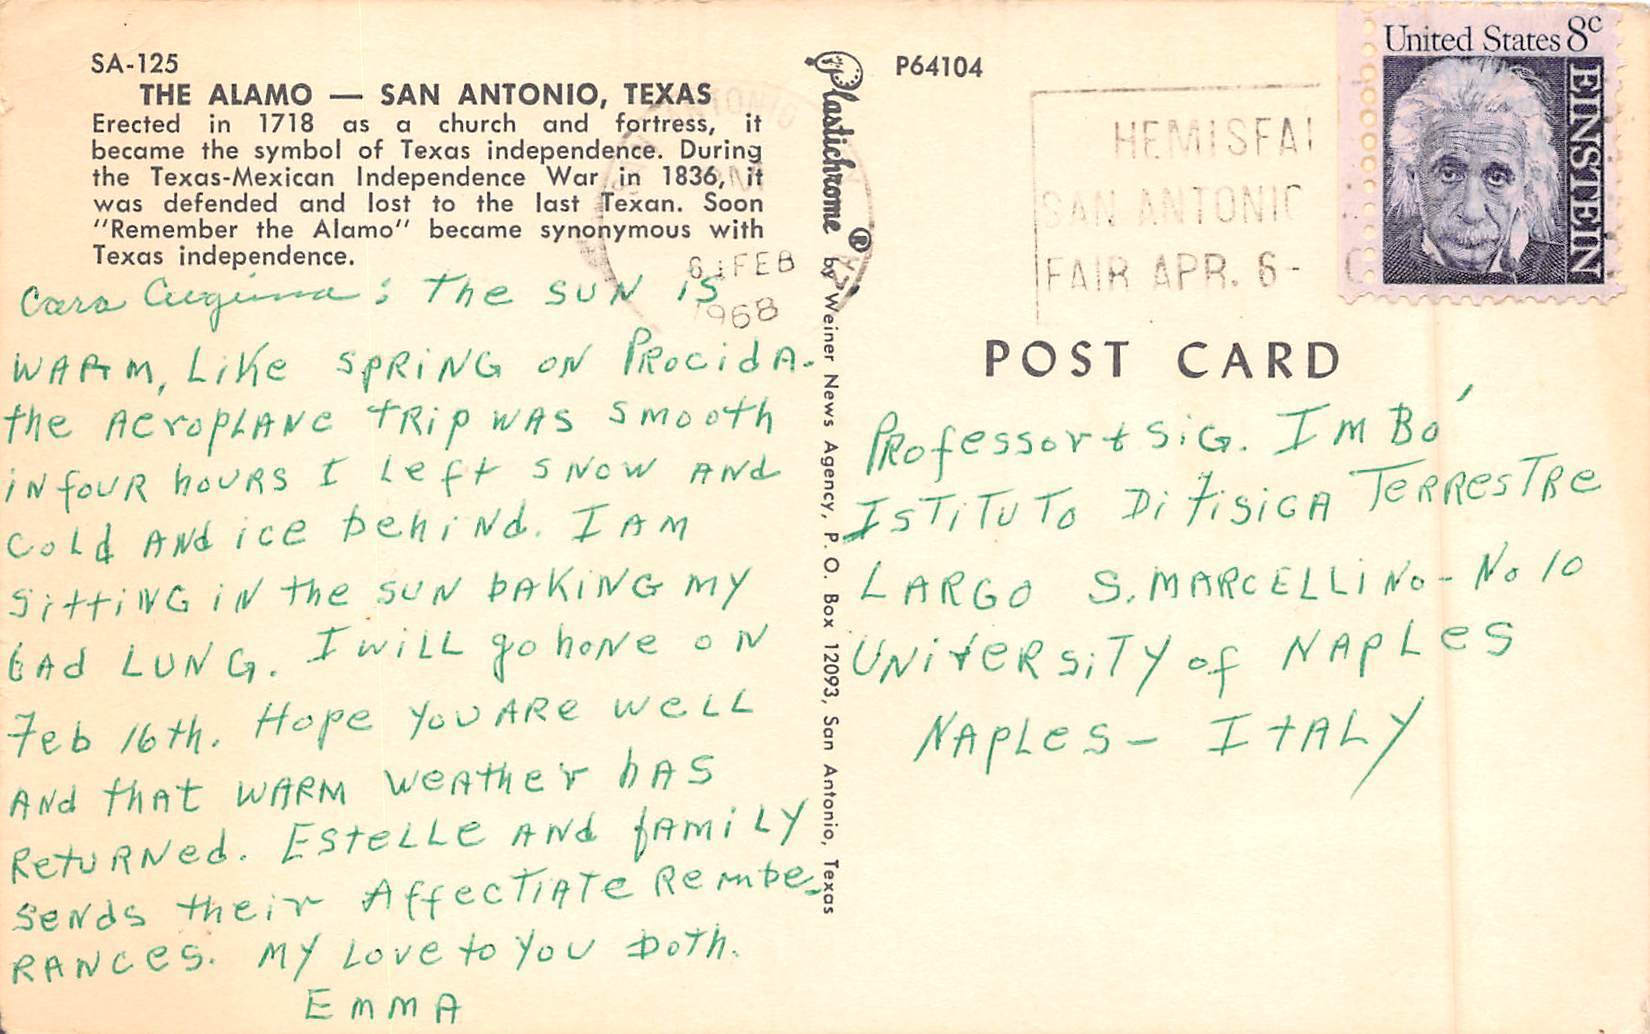 SA-125
THE ALAMO — SAN ANTONIO, TEXAS
Erected in 1718 as a church and fortress, it
became the symbol of Texas independence. During
the Texas-Mexican Independence War in 1836, it
was defended and lost to the last Texan. Soon
"Remember the Alamo" became synonymous with
Texas independence.
Cara : the SUN iS
WARM, Like SPRiNG ON PROCidA.
the AeroPLANe tRip WAS SMooth
iN fouR houRS I Left SNOW AND
CoLd ANd ice behiNd. I AM
SittiNG iN the SUN bAKiNG MY
bAd LUNG. I WiLL go hoNe ON
Feb 16th. Hope YoU ARe WeLL
ANd thAt WARM WeAther hAS
RetURNed. EsteLLe ANd fAMiLY
SeNds their AffecTiATe Rembe-
RANCeS. MY Love to YoU both.
EMMA
Plastichrome ® by Weiner News Agency, P. O. Box 12093, San Antonio, Texas
P64104
SAN ANTONIO
6 FEB
1968
HEMISFAI
SAN ANTONIO
FAIR APR. 6-
United States 8c
EINSTEIN
POST CARD
PRofessor + SiG. IMBó
ISTiTUTo Di FiSiCA TeRResTRe
LARGO S. MARCELLiNo - No 10
UNiveRSiTY of NAPLeS
NAPLeS - ItALY